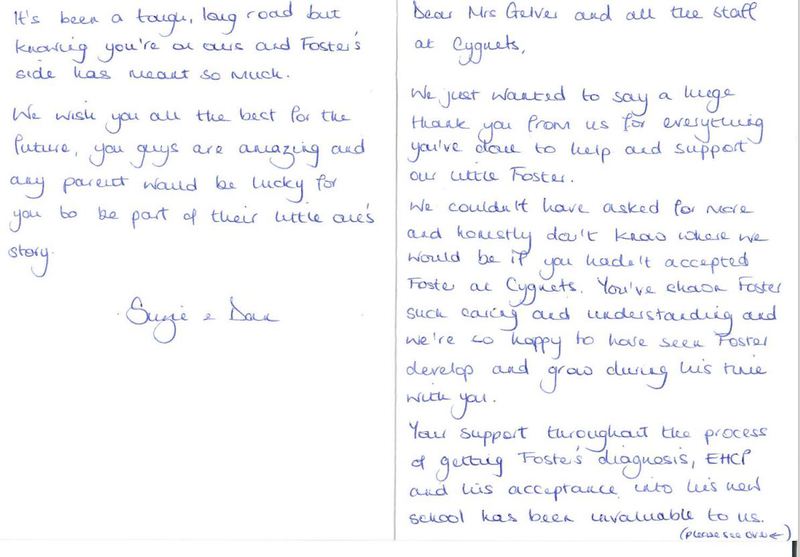 Dear Mrs Gelver and all the staff
at Cygnets,
We just wanted to say a huge
thank you from us for everything
you've done to help and support
our little Foster.
We couldn't have asked for more
and honestly don't know where we
would be if you hadn't accepted
Foster at Cygnets. You've shown Foster
such caring and understanding and
we're so happy to have seen Foster
develop and grow during his time
with you.
Your support throughout the process
of getting Foster's diagnosis, EHCP
and his acceptance into his new
school has been invaluable to us.
(please see over ←)
It's been a tough, long road but
knowing you're on ours and Foster's
side has meant so much.
We wish you all the best for the
future, you guys are amazing and
any parent would be lucky for
you to be part of their little one's
story.
Suzie & Dan